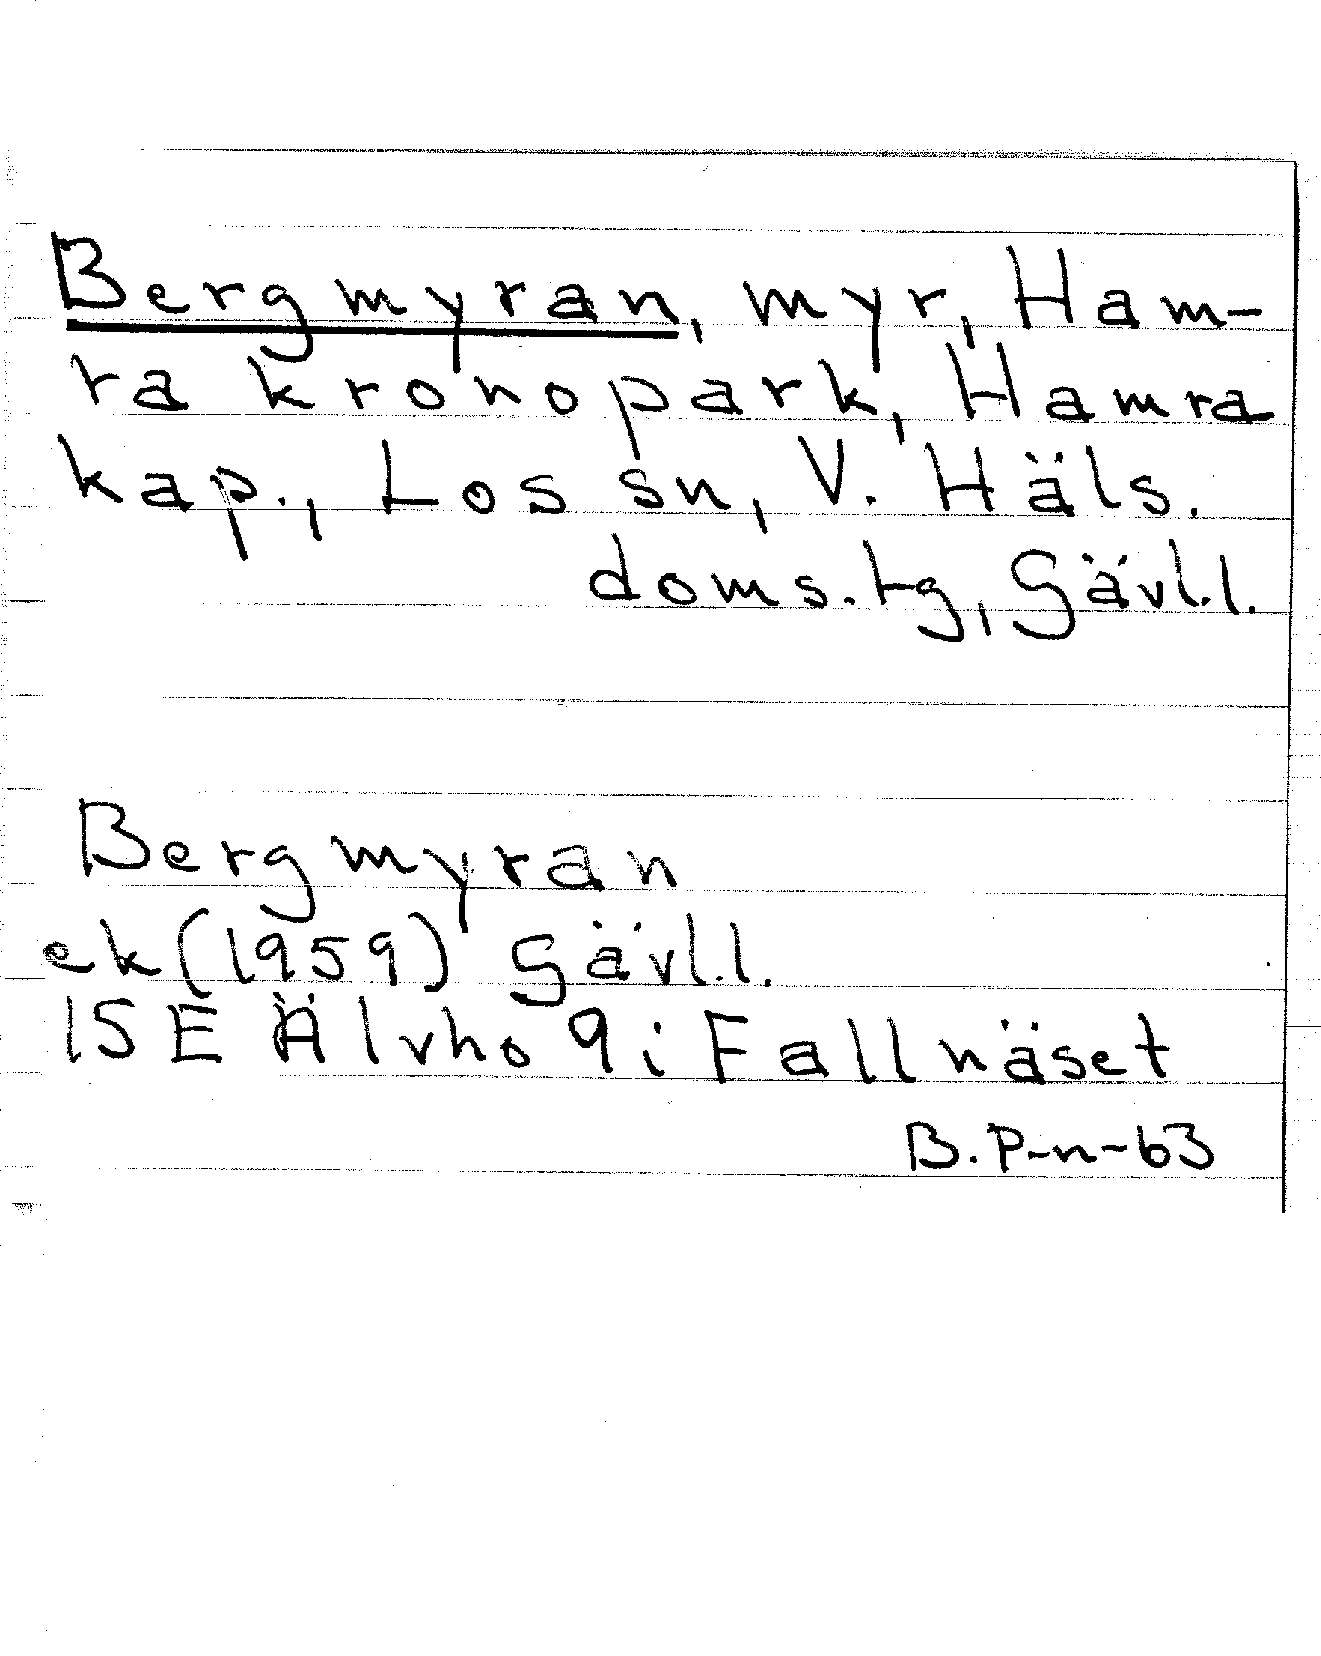 Bergmyran, myr, Ham-
ra kronopark, Hamra
kap., Los sn, V. Häls.
doms.tg, Gävl.l.
Bergmyran
ek(1959) Gävl.l.
15E Älvho 9i Fallnäset
B.P-n-63